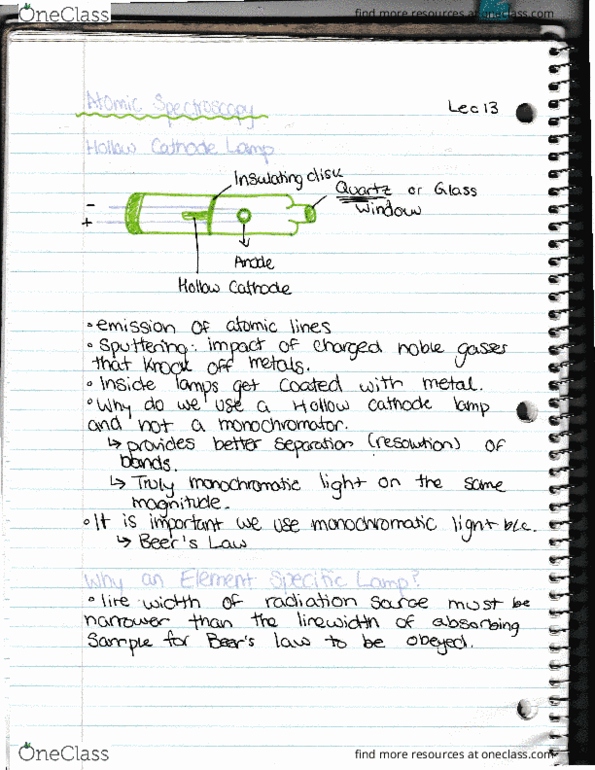 OneClass
find more resources at oneclass.com
Atomic Spectroscopy
Lec 13
Hollow Cathode Lamp
Insulating disk
Quartz or Glass
Window
-
+
Anode
Hollow Cathode
• emission of atomic lines
• Sputtering: impact of charged noble gasses
that knock off metals.
• Inside lamps get coated with metal.
• Why do we use a Hollow cathode lamp
and not a monochromator.
↳ provides better separation (resolution) of
bands.
↳ Truly monochromatic light on the same
magnitude.
• It is important we use monochromatic light b/c.
↳ Beer's Law
Why an Element Specific Lamp?
• line width of radiation source must be
narrower than the linewidth of absorbing
Sample for Beer's law to be obeyed.
OneClass
find more resources at oneclass.com